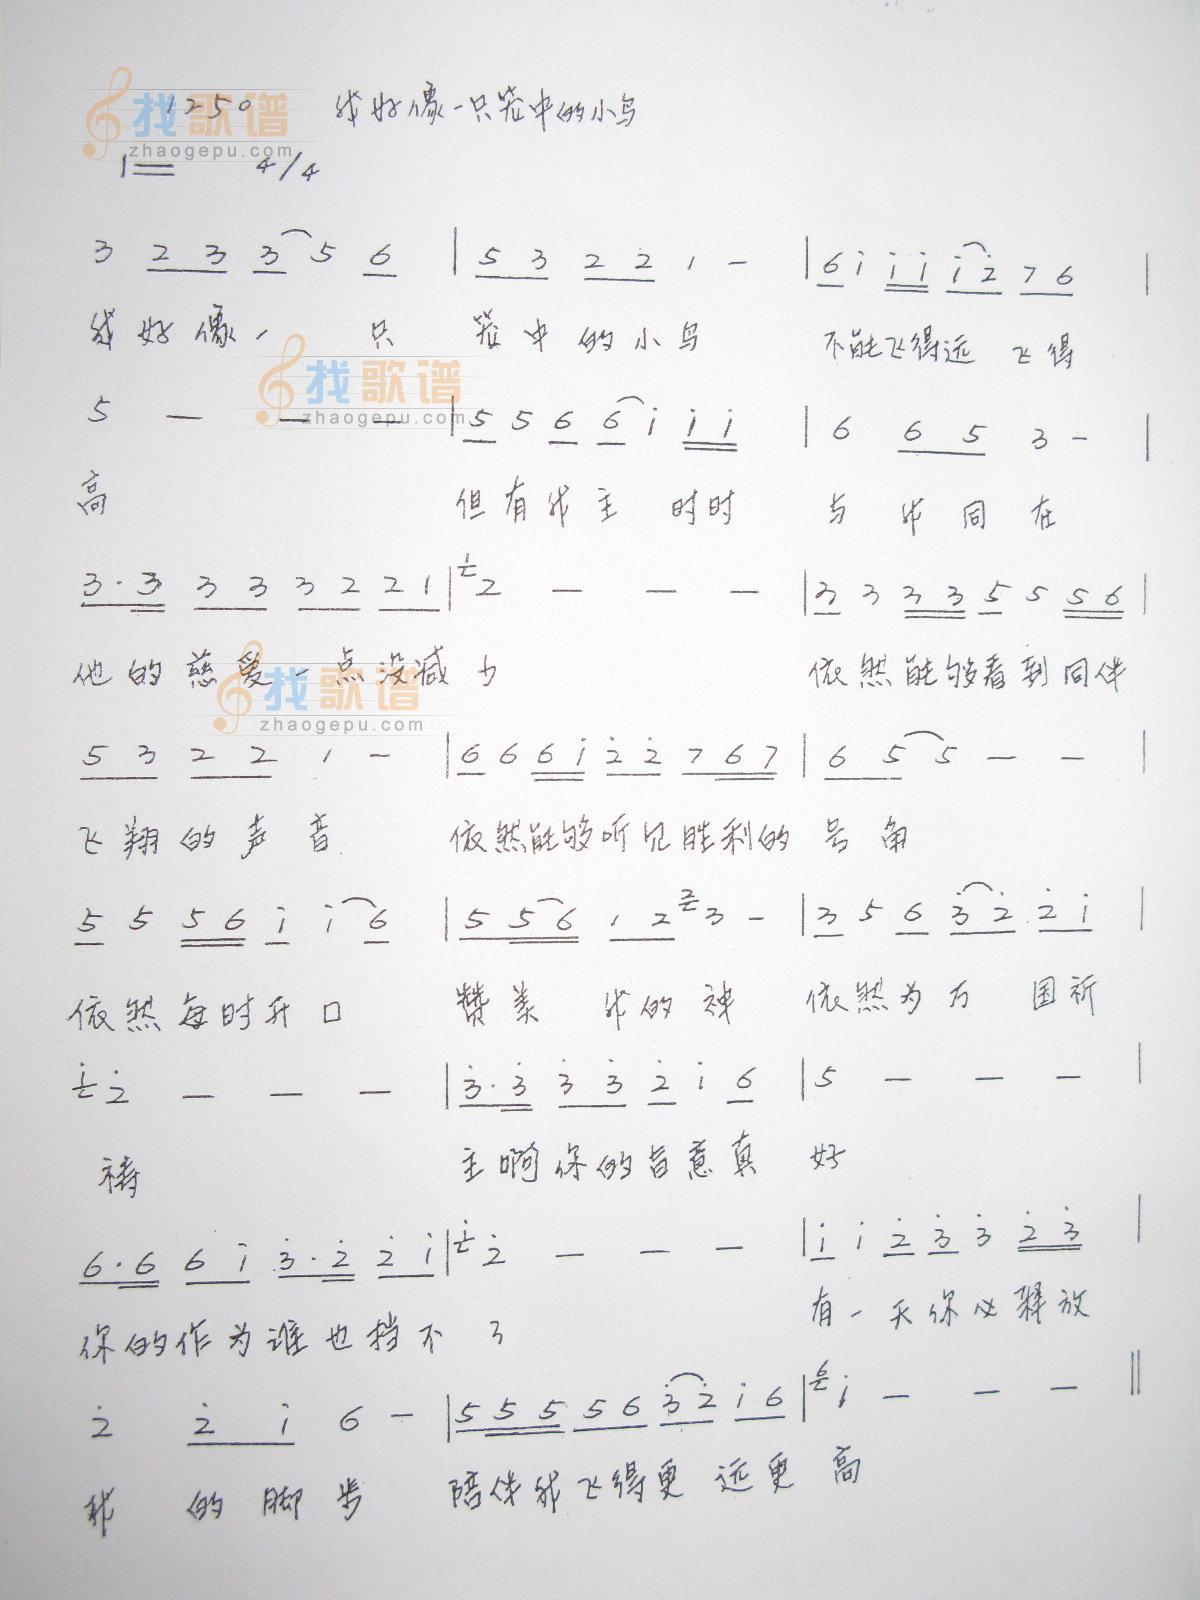 1250 我好像一只笼中的小鸟
找歌谱
zhaogepu.com
1= 4/4
3 2 3 3 5 6 | 5 3 2 2 1 — | 6 i i i i 2 7 6 |
我好像一 只 笼中的小鸟 不能飞得远 飞得
找歌谱
zhaogepu.com
5 — — — | 5 5 6 6 i i i | 6 6 5 3 — |
高 但有我主 时时 与我同在
3 · 3 3 3 3 2 2 1 | 1 2 — — — | 3 3 3 3 5 5 5 6 |
他的慈爱一点没减少 依然能够看到同伴
找歌谱
zhaogepu.com
5 3 2 2 1 — | 6 6 6 i 2 2 7 6 7 | 6 5 5 — — |
飞翔的声音 依然能够听见胜利的 号角
5 5 5 6 i i 6 | 5 5 6 1 2 2 3 — | 3 5 6 3 2 2 i |
依然每时开口 赞美 我的神 依然为万 国祈
i 2 — — — | 3 · 3 3 3 2 i 6 | 5 — — — |
祷 主啊你的旨意真 好
6 · 6 6 i 3 · 2 2 i | i 2 — — — | i i 2 3 3 2 3 |
你的作为谁也挡不 了 有一天你必释放
2 2 i 6 — | 5 5 5 5 6 3 2 i 6 | 6 i — — — ||
我 的脚步 陪伴我飞得更 远更 高